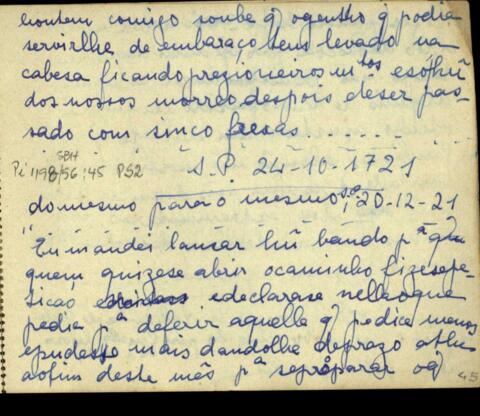 hontem comigo soube q̃ ogentho q̃ podia
servirlhe de embaraço tens levado na
cabesa ficando prezioneiros m.tos esó hũ
dos nossos morreo despois deser pas-
sado com sinco frexas......
S.P. 24-10-1721
SBH
Pi 1198/56;45 PS2
do mesmo para o mesmo, 20-12-21
"Eu mandei lansar hũ bando p.a q̃
quem quizese abrir ocaminho fizesepe-
ticaõ edeclarase nelleoque
pedia p.a deferir aquelle q̃ pedice menos
epudesse mais dandolhe deprazo athe
aofim deste mês p.a sepreparar oq̃
45